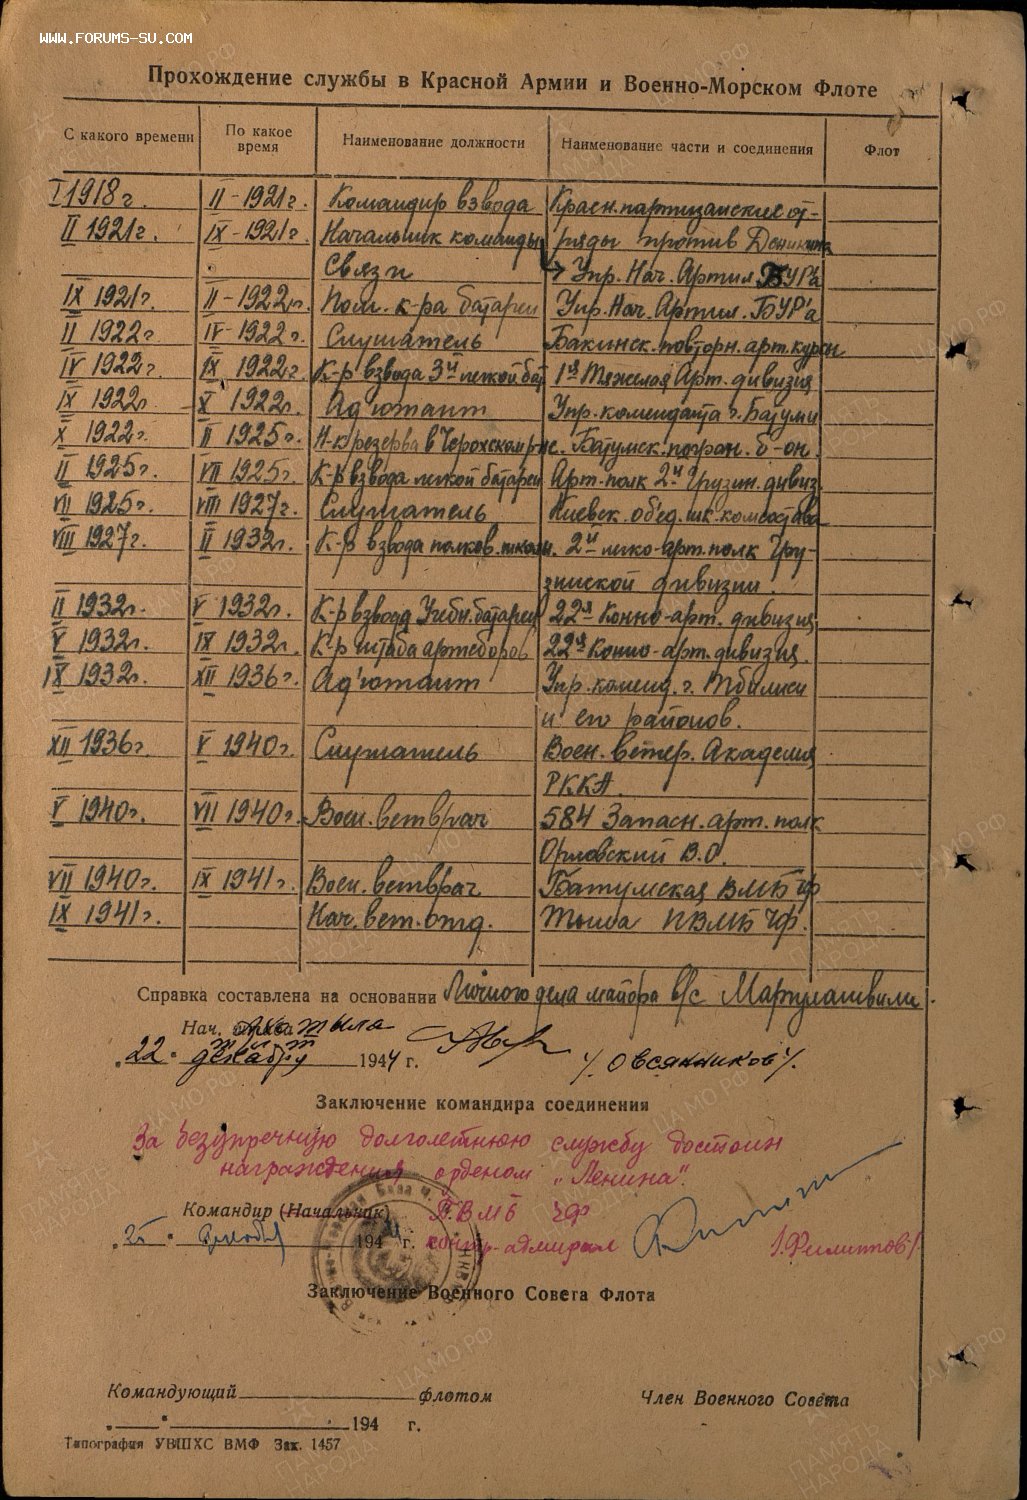 WWW.FORUMS-SU.COM
Прохождение службы в Красной Армии и Военно-Морском Флоте
С какого времени По какое время Наименование должности Наименование части и соединения Флот
I 1918г. II-1921г. Командир взвода Красн. партизанские от-
II 1921г. IX-1921г. Начальник команды ряды против Деникина
Связи Упр. Нач. Артил. БУР'а
IX 1921г. II-1922г. Пом. к-ра батареи Упр. Нач. Артил. БУР'а
II 1922г IV-1922г. Слушатель Бакинск. повторн. арт. курсы
IV 1922г. IX 1922г. К-р взвода 3й легкой бат. 1я Тяжелая Арт. дивизия
IX 1922г. X 1922г. Ад'ютант Упр. коменданта г. Батуми
X 1922г. II 1925г. Н-к резерва в Чорохском р-не. Батумск. погран. б-он.
II 1925г. VII 1925г. К-р взвода легкой батареи Арт-полк 2й Грузин. дивиз.
VII 1925г. VIII 1927г. Слушатель Киевск. об'ед. шк. комсостава
VIII 1927г. II 1932г. К-р взвода полков. школы. 2й легко-арт. полк Гру-
зинской дивизии.
II 1932г. V 1932г. К-р взвода Учебн. батареи 22я Конно-арт. дивизия
V 1932г. IX 1932г. К-р штаба 22я Конно-арт. дивизия.
IX 1932г. XII 1936г. Ад'ютант Упр. коменд. г. Тбилиси
и его районов.
XII 1936г V 1940г. Слушатель Воен. ветер. Академия
РККА.
V 1940г. VII 1940г. Воен. ветврач 584 Запасн. арт. полк
Орловский В.О.
VII 1940г. IX 1941г. Воен. ветврач Батумская ВМБ ЧФ
IX 1941г. Нач. вет. отд. Тыла ПВМБ ЧФ.
Справка составлена на основании Личного дела майора в/с Марулашвили.
Нач. тыла
„22" декабря 1944 г. /Овсянников/.
Заключение командира соединения
За безупречную долголетнюю службу достоин
награждения орденом „Ленина".
Командир (Начальник) ПВМБ ЧФ
„25" декабря 1944 г. контр-адмирал /.Филиппов/
Заключение Военного Совета Флота
Командующий флотом Член Военного Совета
„ " 194 г.
Типография УВШХС ВМФ Зак. 1457
ПАМЯТЬ НАРОДА
ЦАМО.РФ